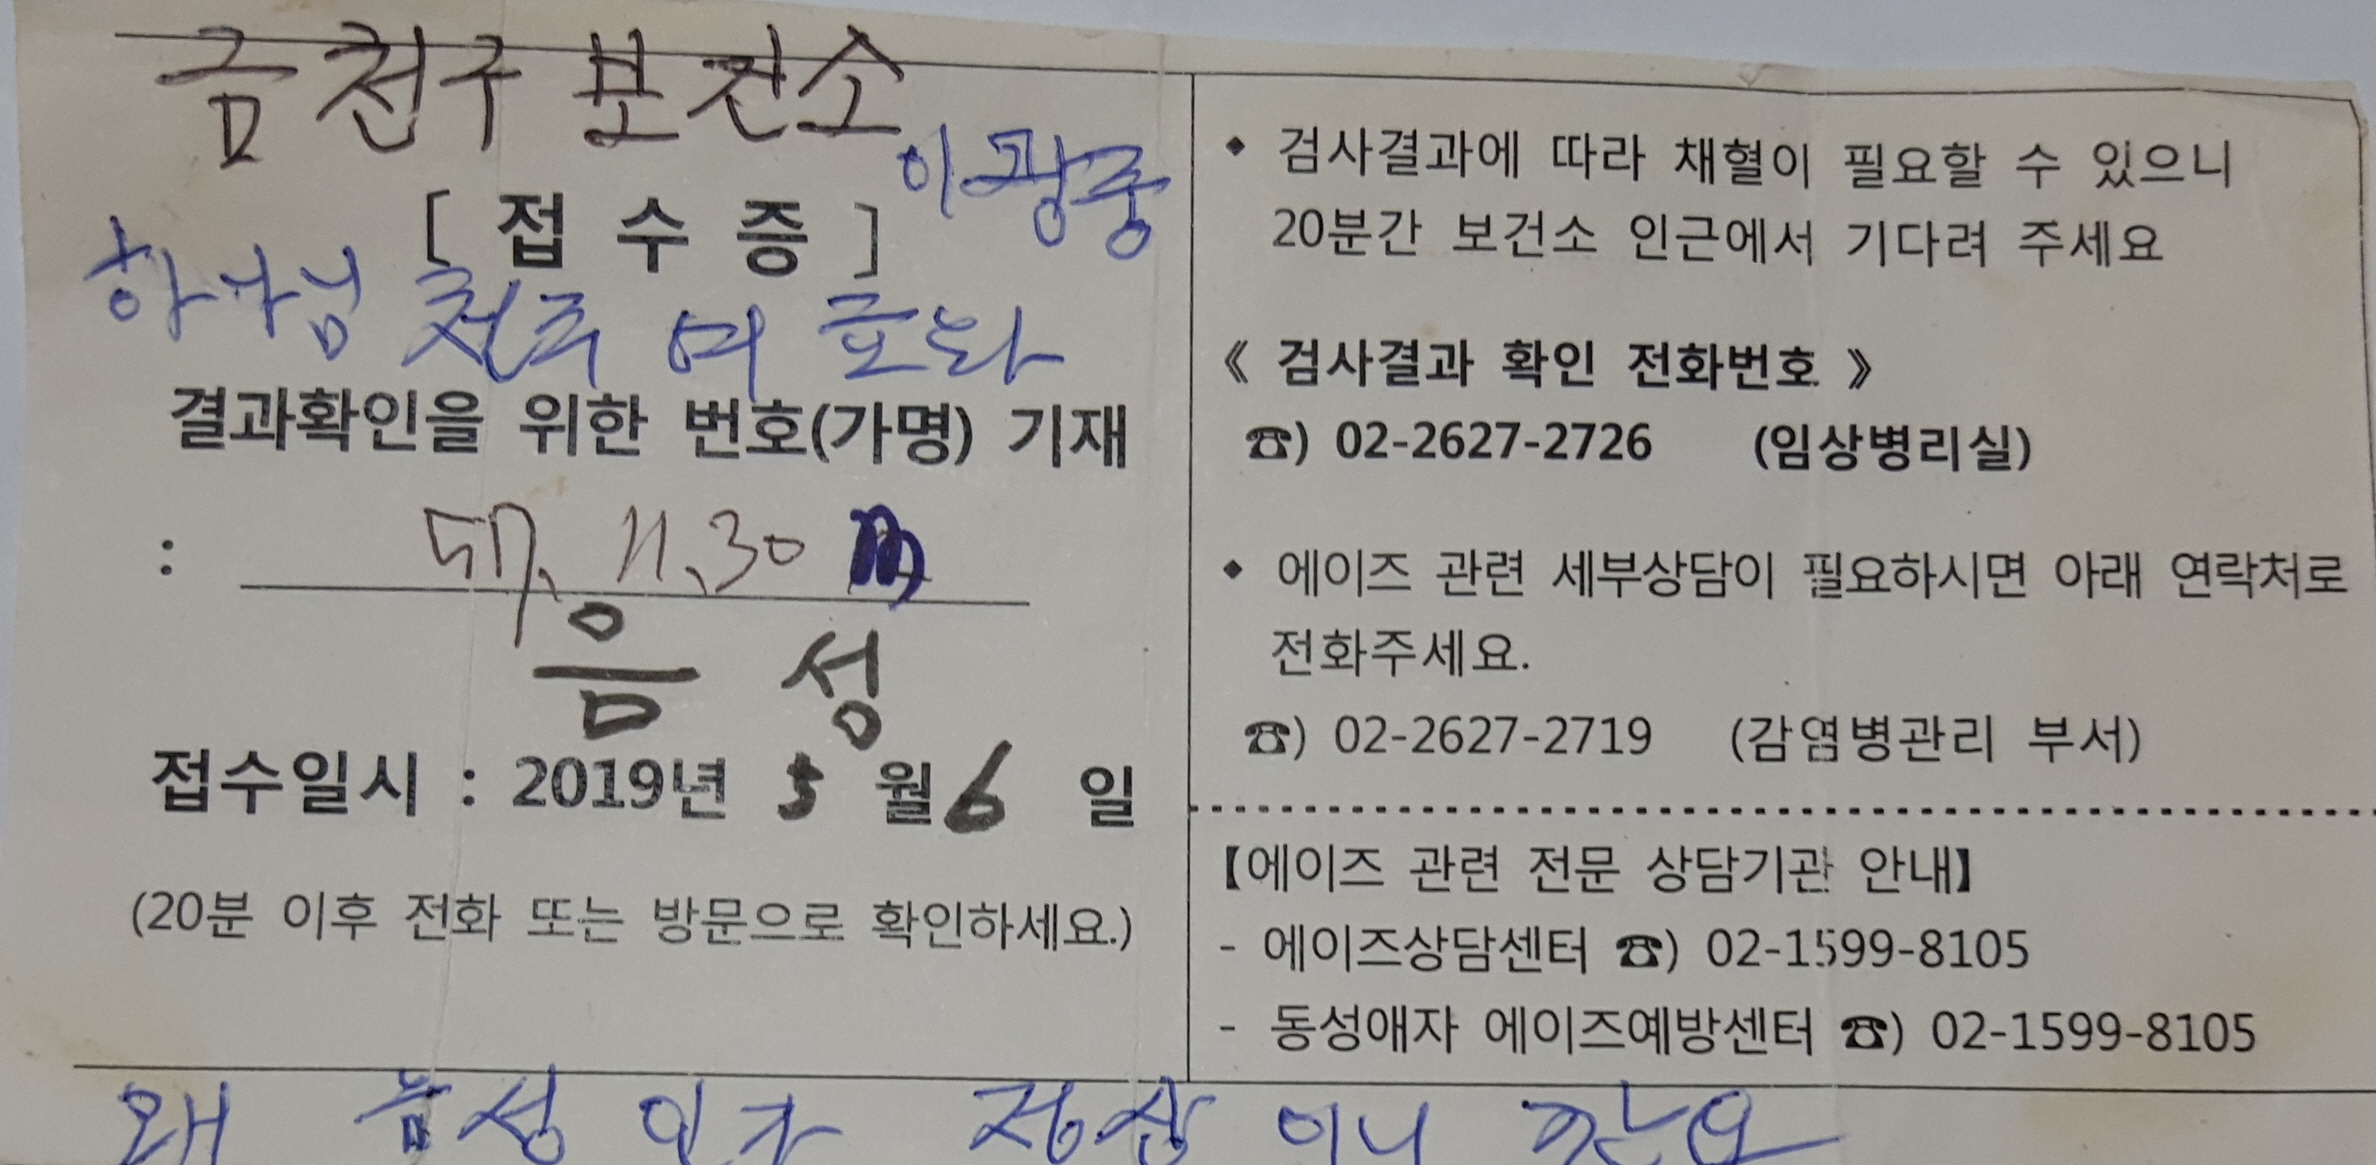 금천구 보건소
이광중
[ 접 수 증 ]
하나님 천주 여호와
결과확인을 위한 번호(가명) 기재
: 57. 11.30
음 성
접수일시 : 2019년 5 월 6 일
(20분 이후 전화 또는 방문으로 확인하세요.)
◆ 검사결과에 따라 채혈이 필요할 수 있으니
20분간 보건소 인근에서 기다려 주세요
《 검사결과 확인 전화번호 》
☎) 02-2627-2726 (임상병리실)
◆ 에이즈 관련 세부상담이 필요하시면 아래 연락처로
전화주세요.
☎) 02-2627-2719 (감염병관리 부서)
【에이즈 관련 전문 상담기관 안내】
- 에이즈상담센터 ☎) 02-1599-8105
- 동성애자 에이즈예방센터 ☎) 02-1599-8105
왜 음성 인가 정상 이니